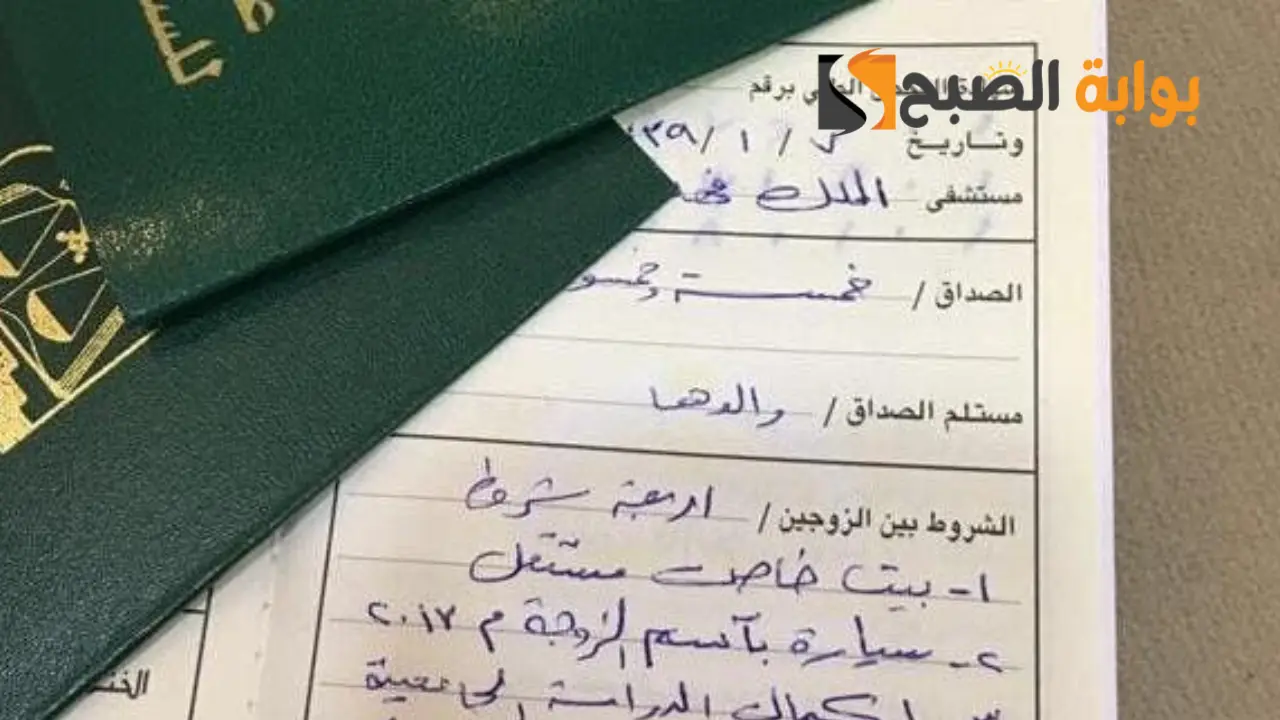 بوابة الصبح
برقم
وتاريخ / ١ / ٣٩
مستشفى الملك
الصداق / خمسة وخمسو
مستلم الصداق / والدها
الشروط بين الزوجين / اربعة شروط
١- بيت خاص مستقل
٢- سيارة بآسم الزوجة م ٢٠١٧
٣- اكمال الدراسة الجامعية